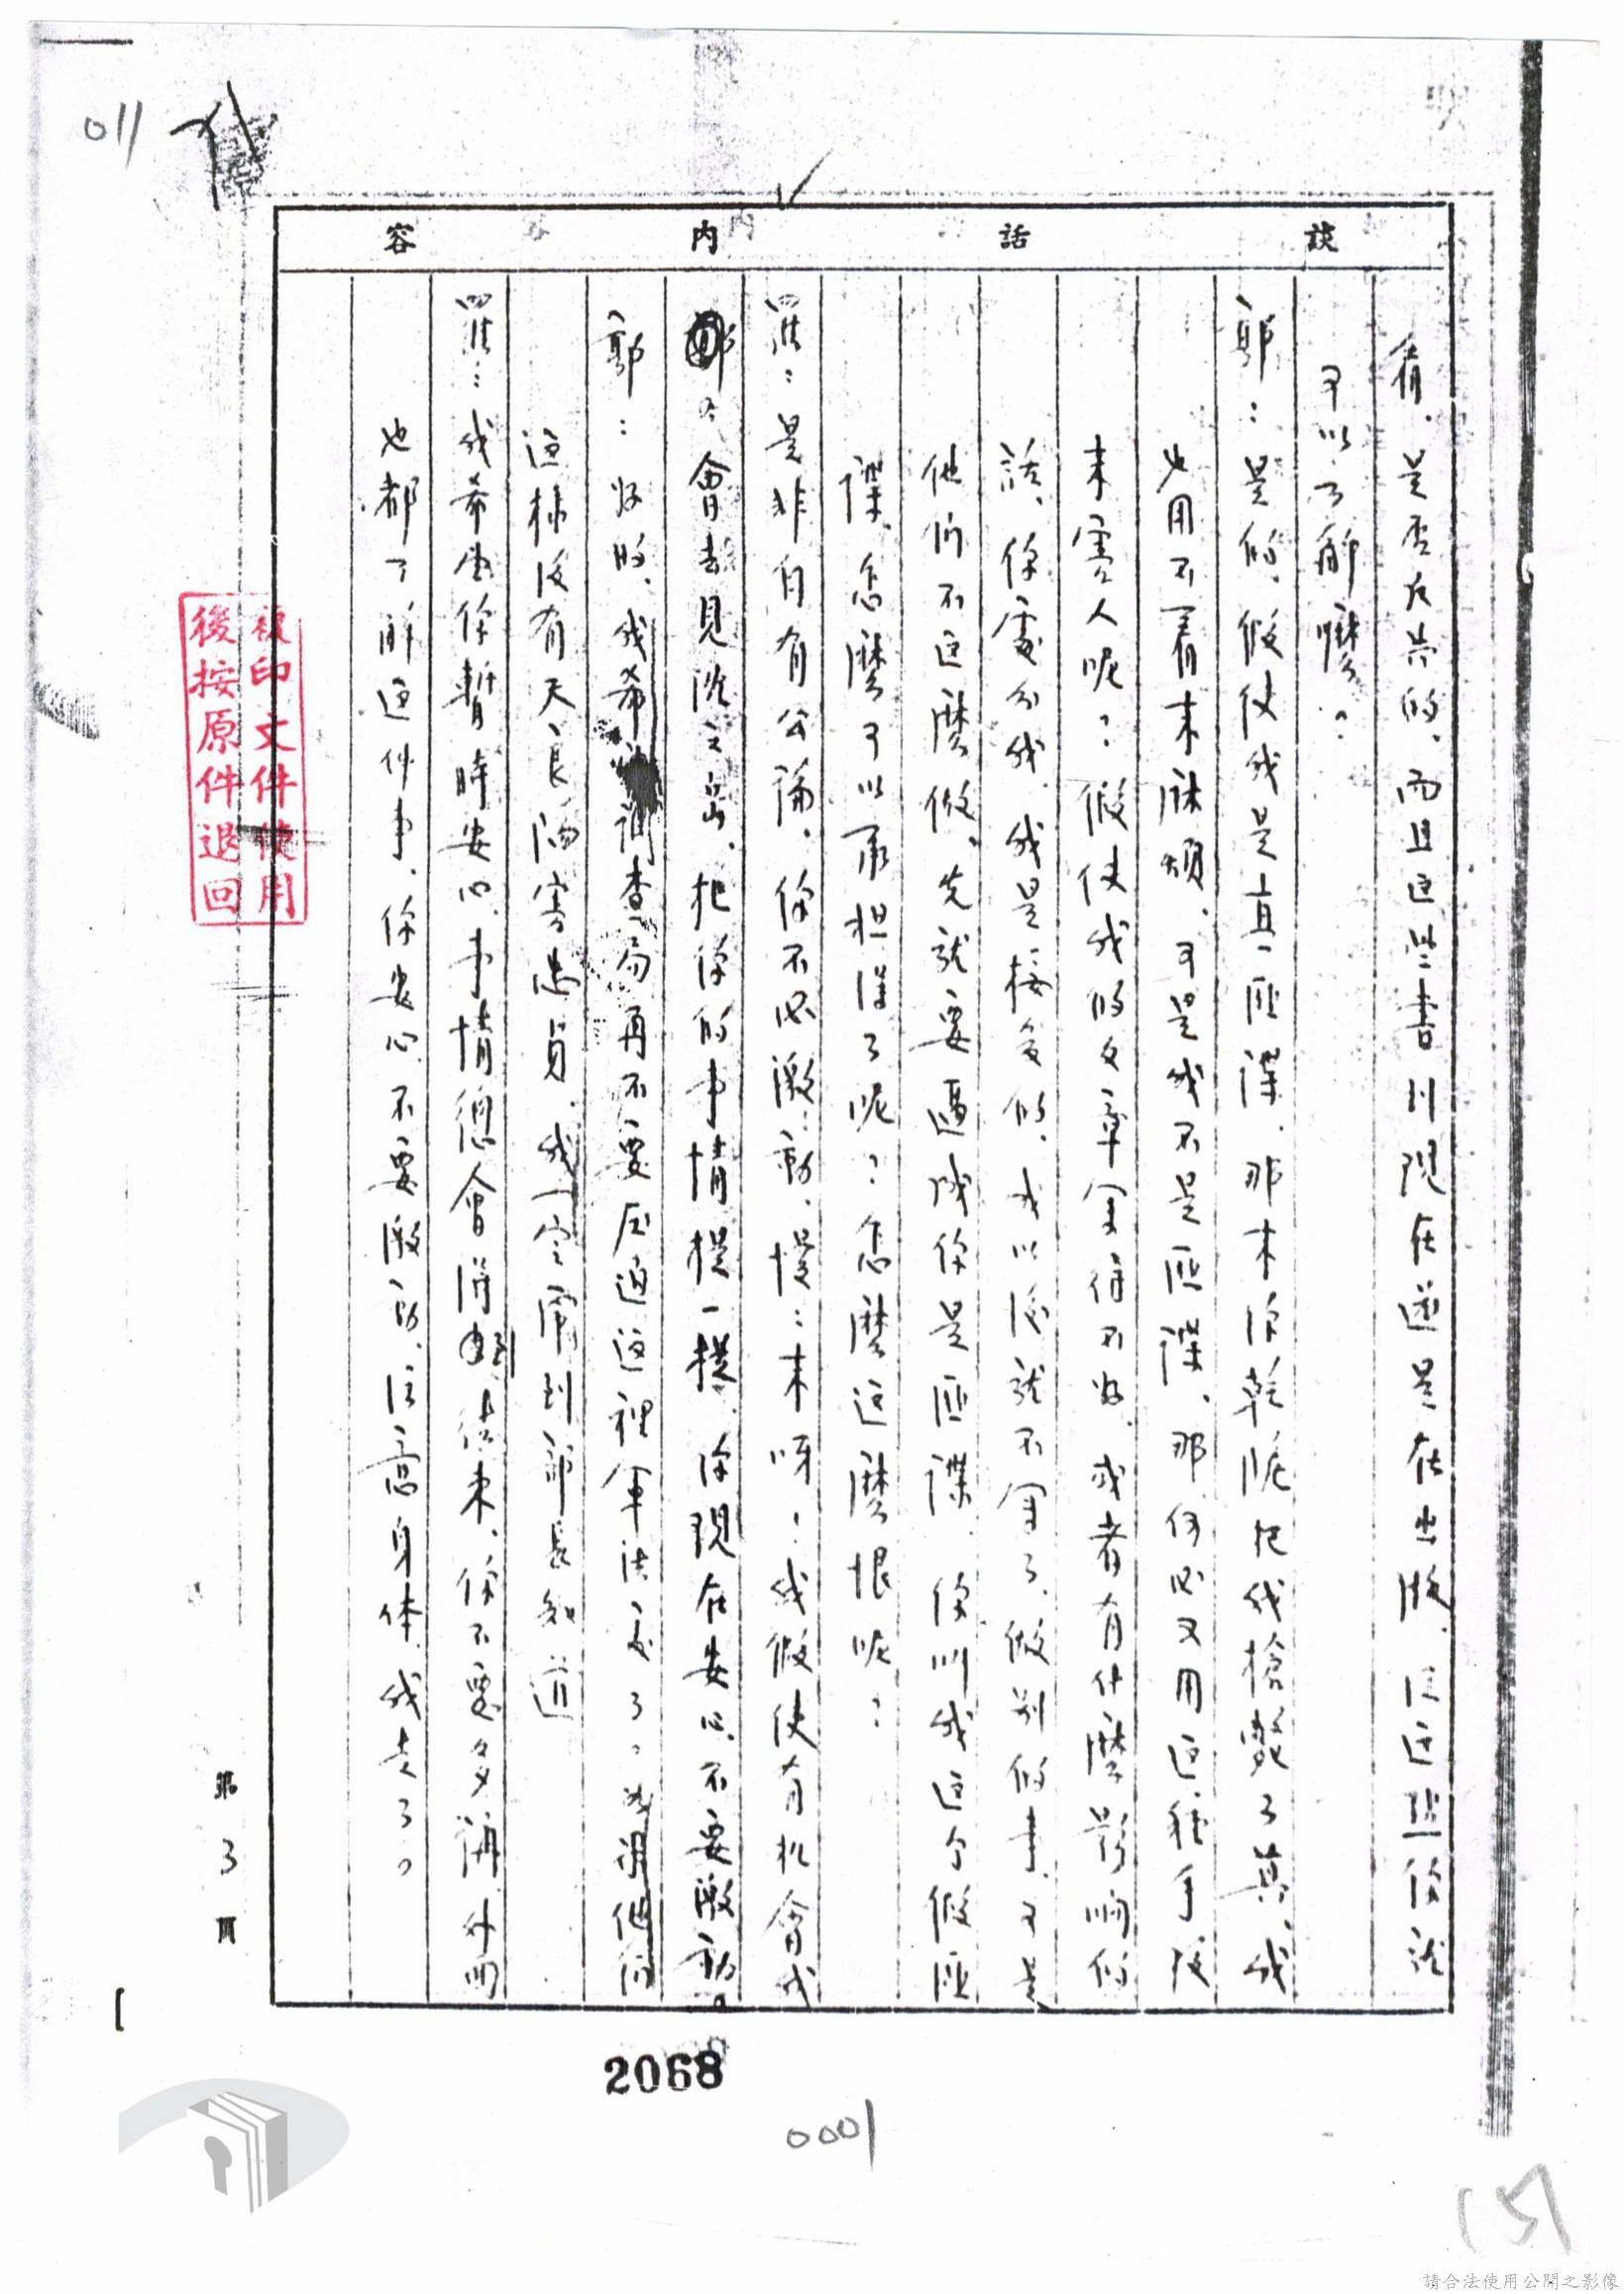 011
談話內容
看，是否反共的，而且這些書刊現在還是在出版，從這些你該
可以了解麼？
郭：是的，假使我是真匪諜，那末你乾脆把我槍斃了算，我
也用不着來麻煩，可是我不是匪諜，那何必又用這種手段
來害人呢？假使我的文章寫得不好，或者有什麼影响的
話，你處分我，我是接受的，我以後就不寫了，做別的事，可是
他們不這麼做，先就要逼成你是匪諜，你叫我這个假匪
諜怎麼可以承担得了呢？怎麼這麼恨呢？
羅：是非自有公論，你不必激動，慢：來呀：我假使有机會我
會去見沈之岳，把你的事情提一提，你現在安心，不要激動。
郭：好的，我希 調查局再不要压迫這裡軍法處了。
這樣没有天良陷害忠貞，我一定庸到部長知道
羅：我希望你暫時安心，事情總會得 結束，你不要多講，外面
也都了解這件事，你安心，不要激動，注意身体，我走了。
第 3 頁
被印文件使用
後按原件退回
2068
0001
(5)
請合法使用公開之影像